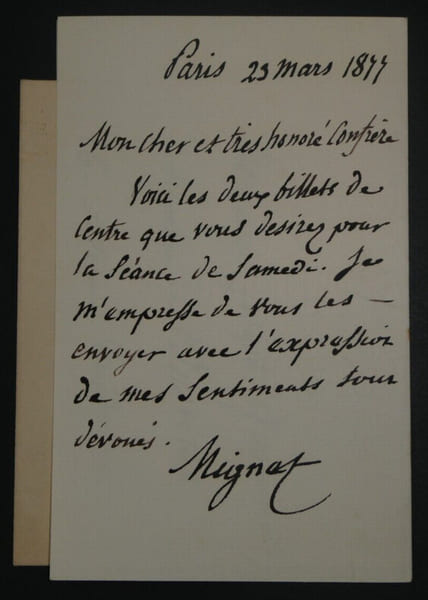 Paris 23 mars 1877
Mon cher et très honoré Confrère
Voici les deux billets de
Centre que vous desirez pour
la Séance de Samedi. Je
m'empresse de vous les —
envoyer avec l'expression
de mes Sentiments tous
dévoués.
Mignet